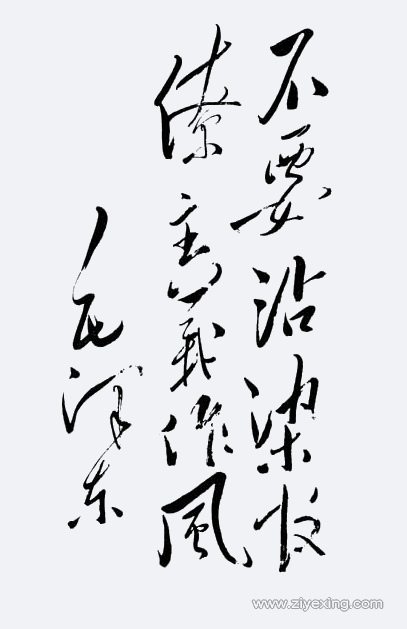 不要沾染官
僚主義作風
毛泽东
www.ziyexing.com